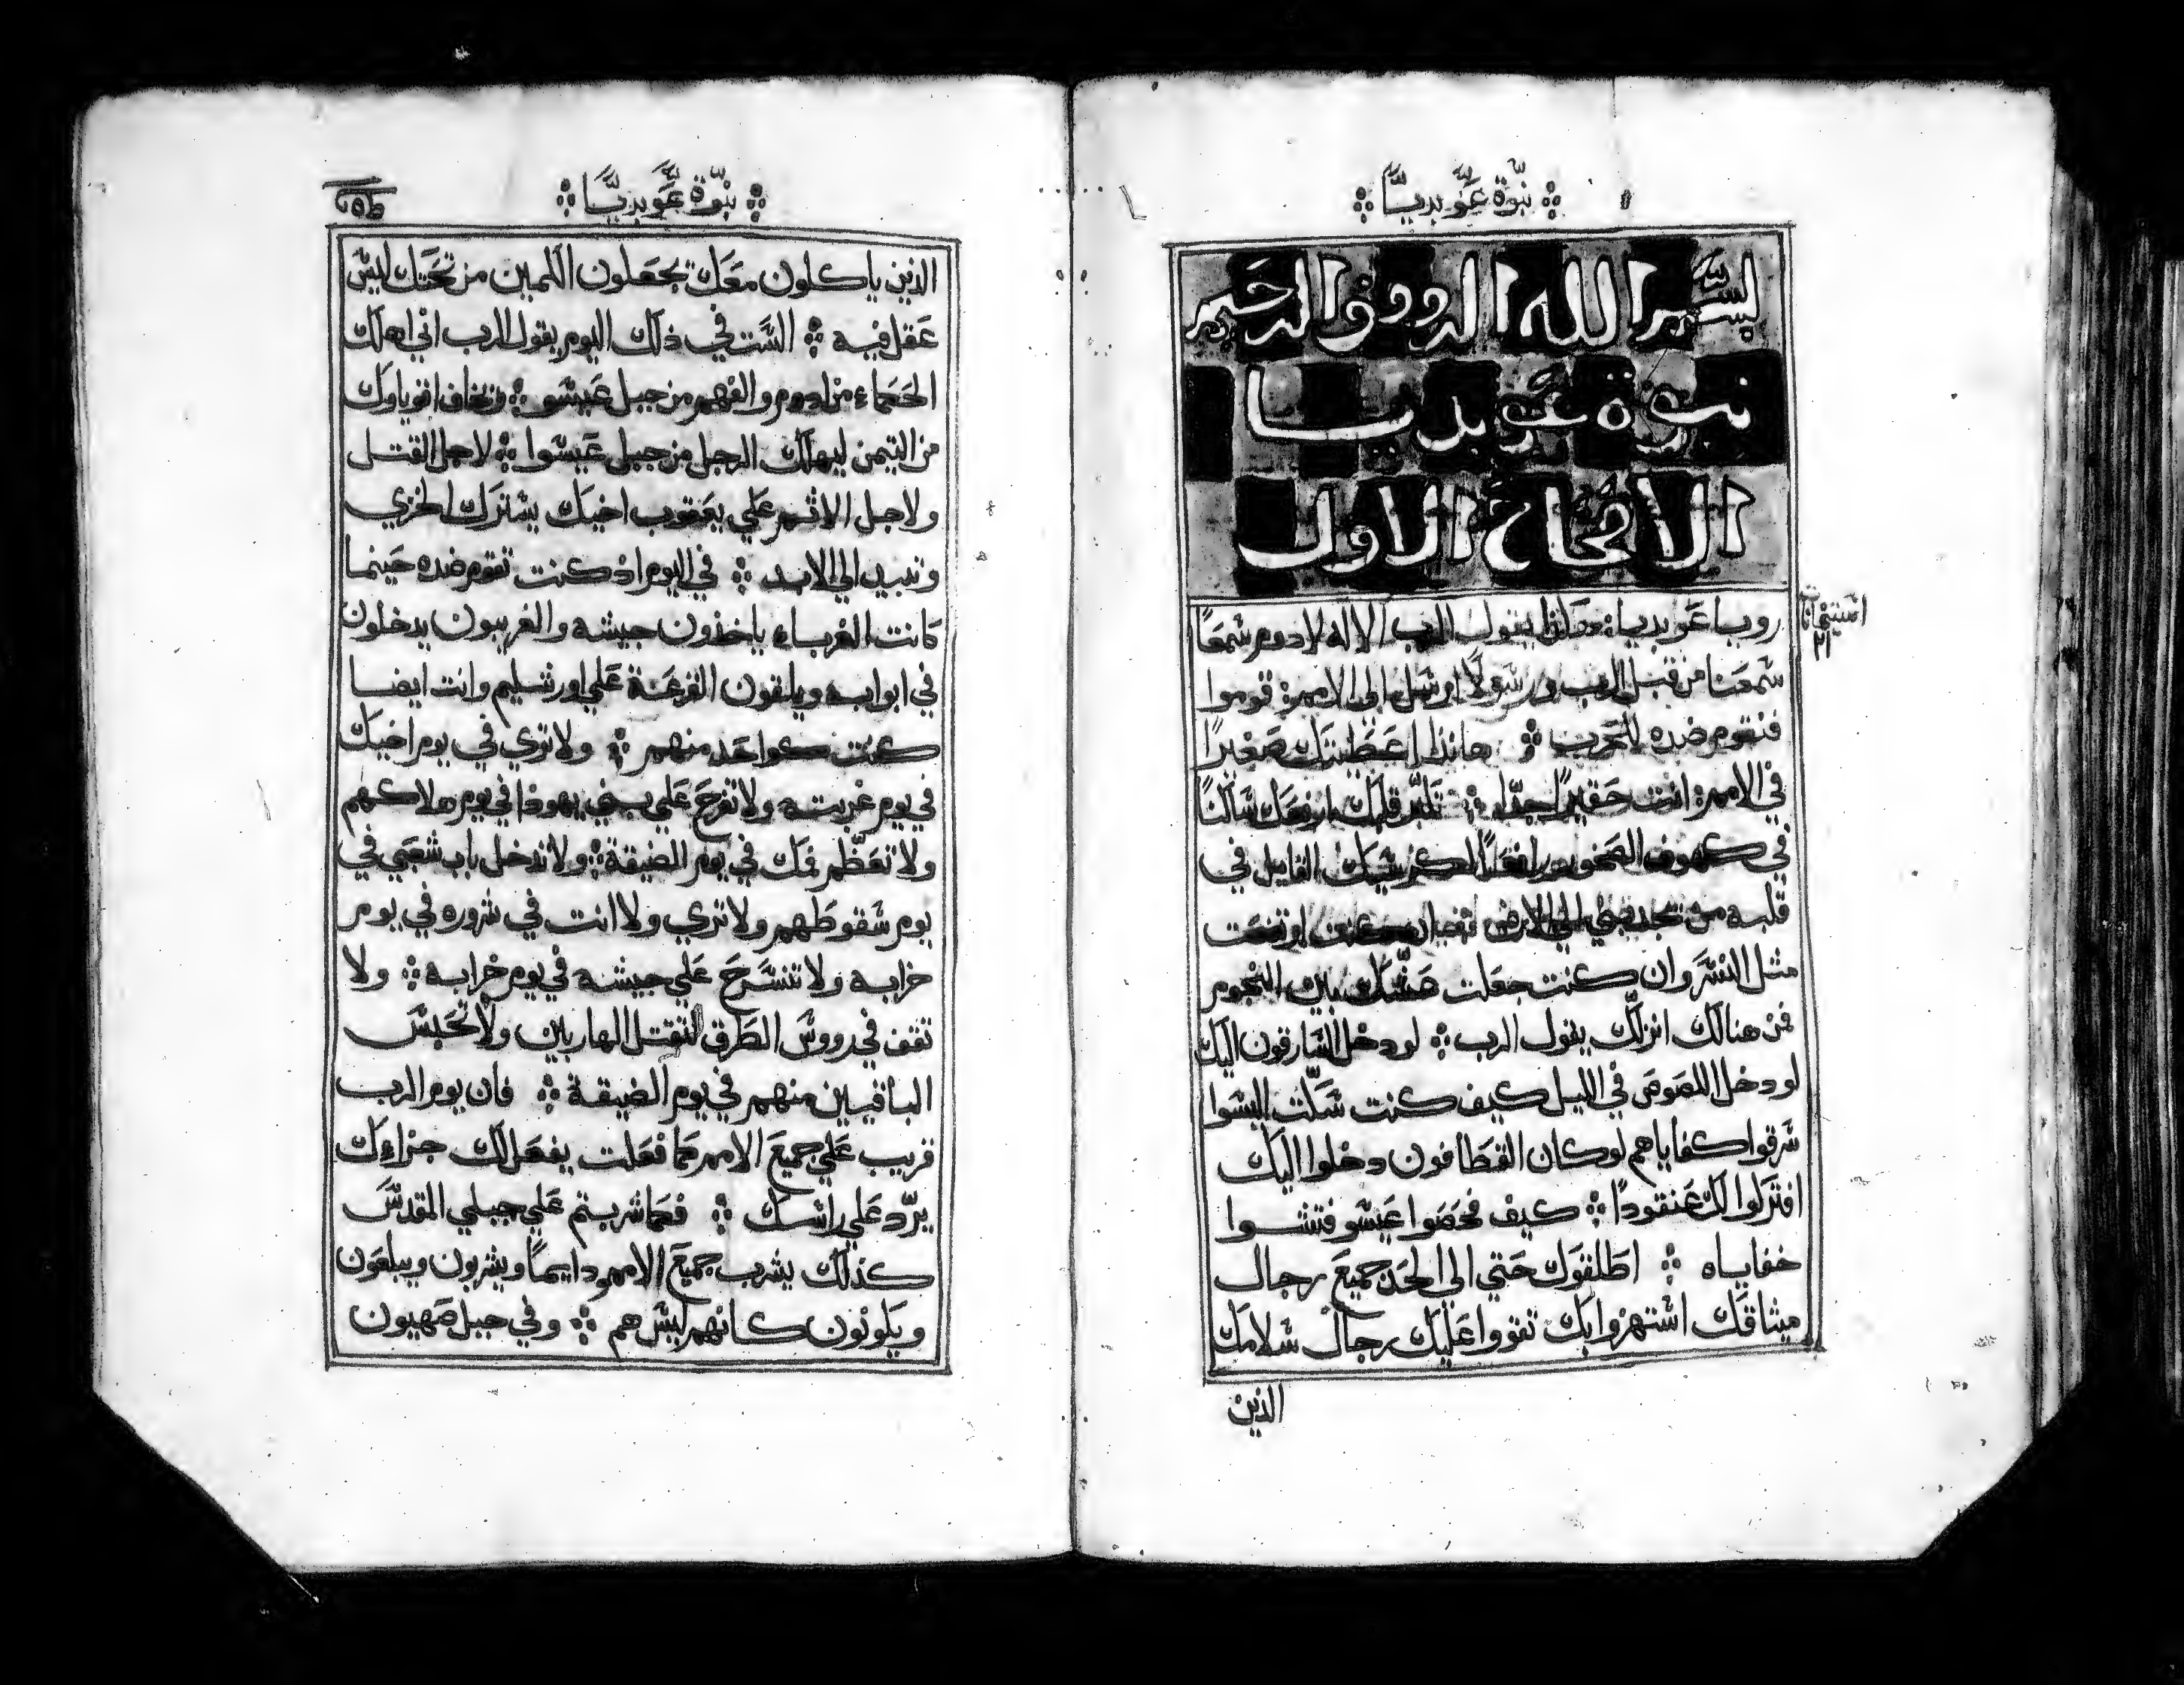 نبّوة عَوبديّا
بسم الله الروف الرحيم
نبوة عوبديا
الاصحاح الاول
رويا عَوبديا هكذا يقول الرب الاله لادوم سَمعًا
سَمعنا من قبل الرب ورسَولًا ارسَل الي الامم قوموا
فنقوم ضده للحرب هانذا اعَطَيتك صَغيرًا
في الامم انت حَقيرًا جدًا تكبّر قلبك ارفعَك سَاكنًا
في كهوف الصَخور رافعًا كرسَيك القايل في
قلبه من يحدرني الي الارض ان ارتفعَت
مثل النسَر وان كنت جعَلت عَشّك بين النجوم
فمن هنالك انزلّك يقول الرب لو دخل السَارقون اليك
لو دخل اللصَوصَ في الليل كيف كنت سَكّت اليسَوا
سَرقوا كفاياهم لو كان القطَافون دخلوا اليك
افتركوا لك عَنقودًا كيف فحَصَوا عَيسَو فتشوا
خفاياه اطَلقوَك حَتي الي الحَد جميعَ رجال
ميثاقك اسَتهزوا بك تقووا عَليك رجال سَلامك
الذين
امَتيحانات
٢١
نبّوة عَوبديّا
الذين ياكلون معَك يجعَلون الكمين من تحَتك ليسَ
عَقل فيه السَت في ذلك اليوم يقول الرب اني اهلك
الحَكماء من ادوم والفهم من جبل عَيسَو وتخاف اقوياوك
من التيمن ليهلك الرجل من جبل عَيسَوا لاجل القتل
ولاجل الاثم عَلي يعَقوب اخيَك يشترَك الخزي
وتبيد الي الابد في اليوم اذ كنت تقوم ضده حَينما
كانت الغرباء ياخذون جيشه والغريبون يدخلون
في ابوابه ويلقون القرعَة عَلي اورشليم وانت ايضا
كنت كواحَد منهم ولا تري في يوم اخيَك
في يوم غربته ولا تفرحَ عَلي بني يهوذا في يوم هلاكهم
ولا تعَظّم فمك في يوم الضيقة ولا تدخل باب شعَبي في
يوم سَقوطَهم ولا تري ولا انت في شروره في يوم
خرابه ولا تنسَرحَ عَلي جيشه في يوم خرابه ولا
تقف في رووسَ الطَرق لتقتل الهاربين ولا تحَبسَ
الباقيين منهم في يوم الضيقة فان يوم الرب
قريب عَلي جميعَ الامم كما فعَلت يفعَل لك جزاءك
يرّد عَلي راسَك فكما شربتم عَلي جبلي المقدسَ
كذلك يشرب جميعَ الامم دايمًا ويشربون ويبلعَون
ويكونون كانهم ليسَ هم وفي جبل صَهيون